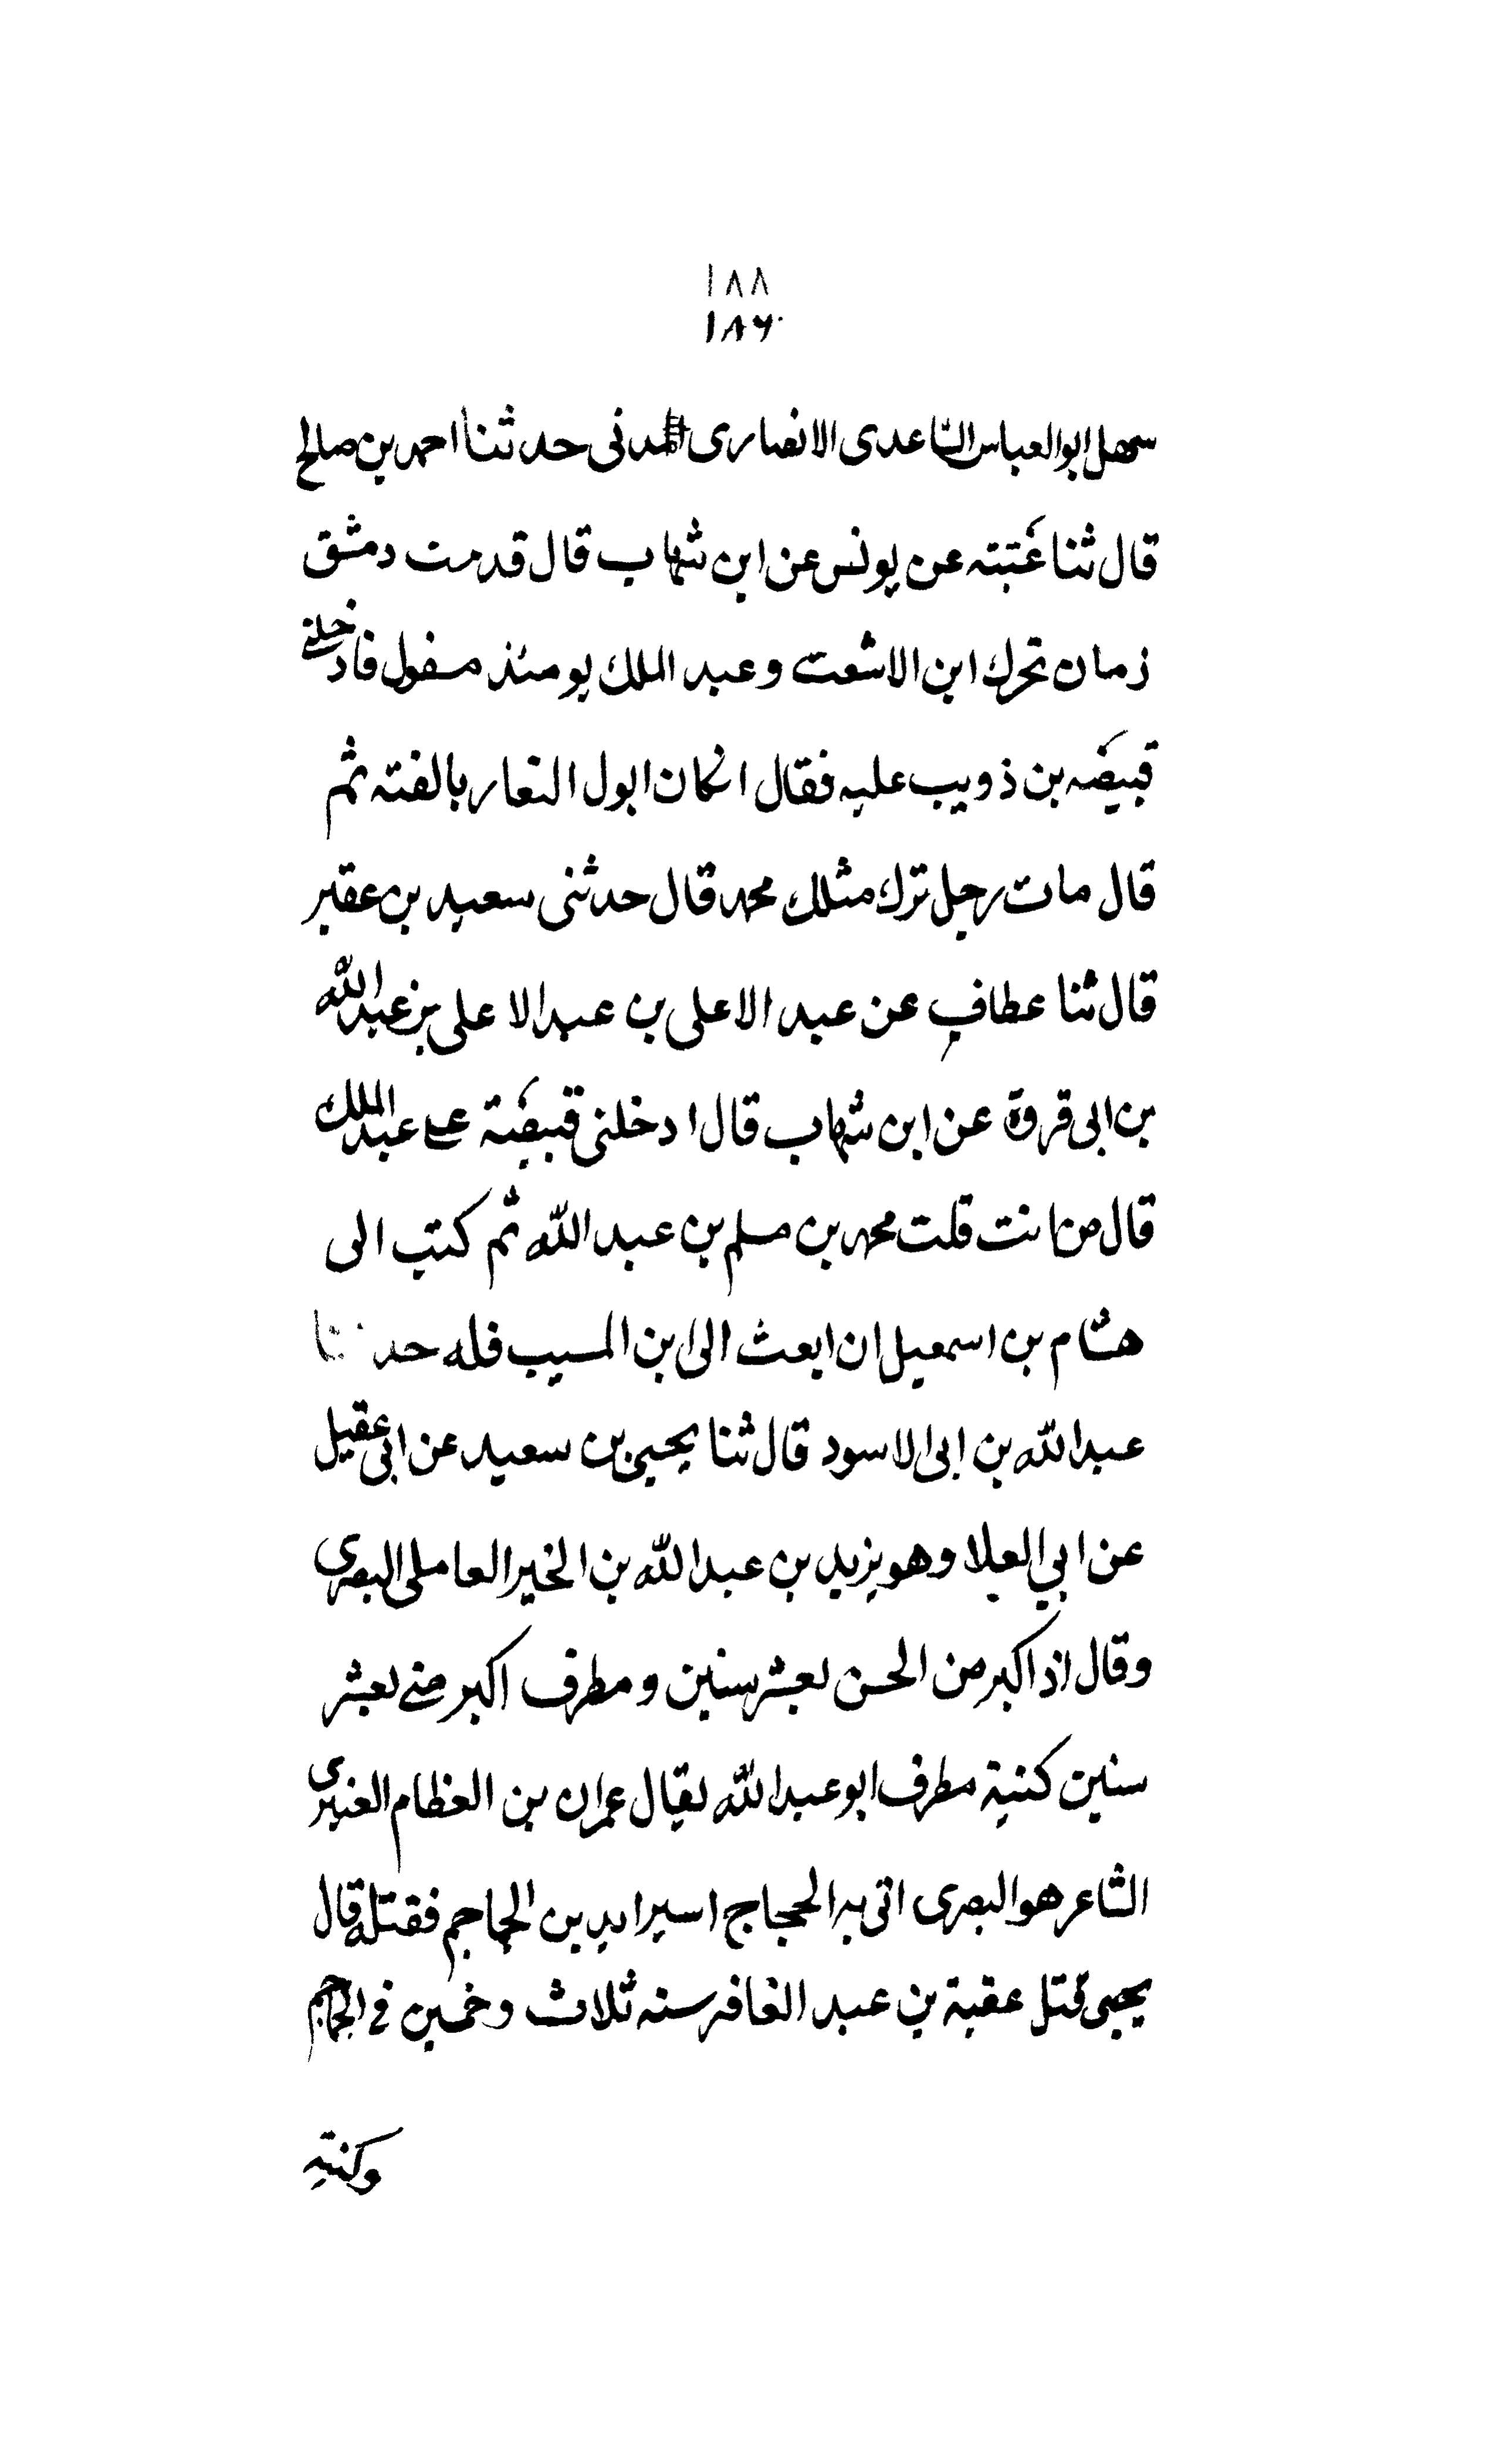 ١٨٨
١٨٦
سهل ابوالعباس الساعدى الانصارى المدنى حدثنا احمد بن صالح
قال ثنا عتبته عن يونس عن ابن شهاب قال قدمت دمشق
زمان تحرك ابن الاشعث وعبد الملك يومئذ مسفول فادخلنى
قبيضه بن ذويب عليه فقال انكان ابول النعار بالفتنه ثم
قال مات رجل ترك مثلك محمد قال حدثنى سعيد بن عقير
قال ثنا عطاف عن عبد الاعلى بن عبد الاعلى بن عبد الله
بن ابى قروة عن ابن شهاب قال ادخلنى قبيضة على عبد الملك
قال من انت قلت محمد بن مسلم بن عبد الله ثم كتب الى
هشام بن اسمعيل ان ابعث الى ابن المسيب فله حدثنا
عبد الله بن ابى الاسود قال ثنا يحيى بن سعيد عن ابى عقيل
عن ابي العلا وهو يزيد بن عبد الله بن الخير العاملى البصرى
وقال اذ اكبر من الحسن بعشر سنين ومطرف اكبر منى بعشر
سنين كنية مطرف ابو عبد الله يقال عمران بن الغظام الغنيرى
الشاعر هو البصرى اتى به الحجاج اسيرا بدير بن الجماجم فقتله قال
يحيى قتل عقبة بن عبد الغافر سنه ثلاث وخمسين فى الجماجم
وكنيته